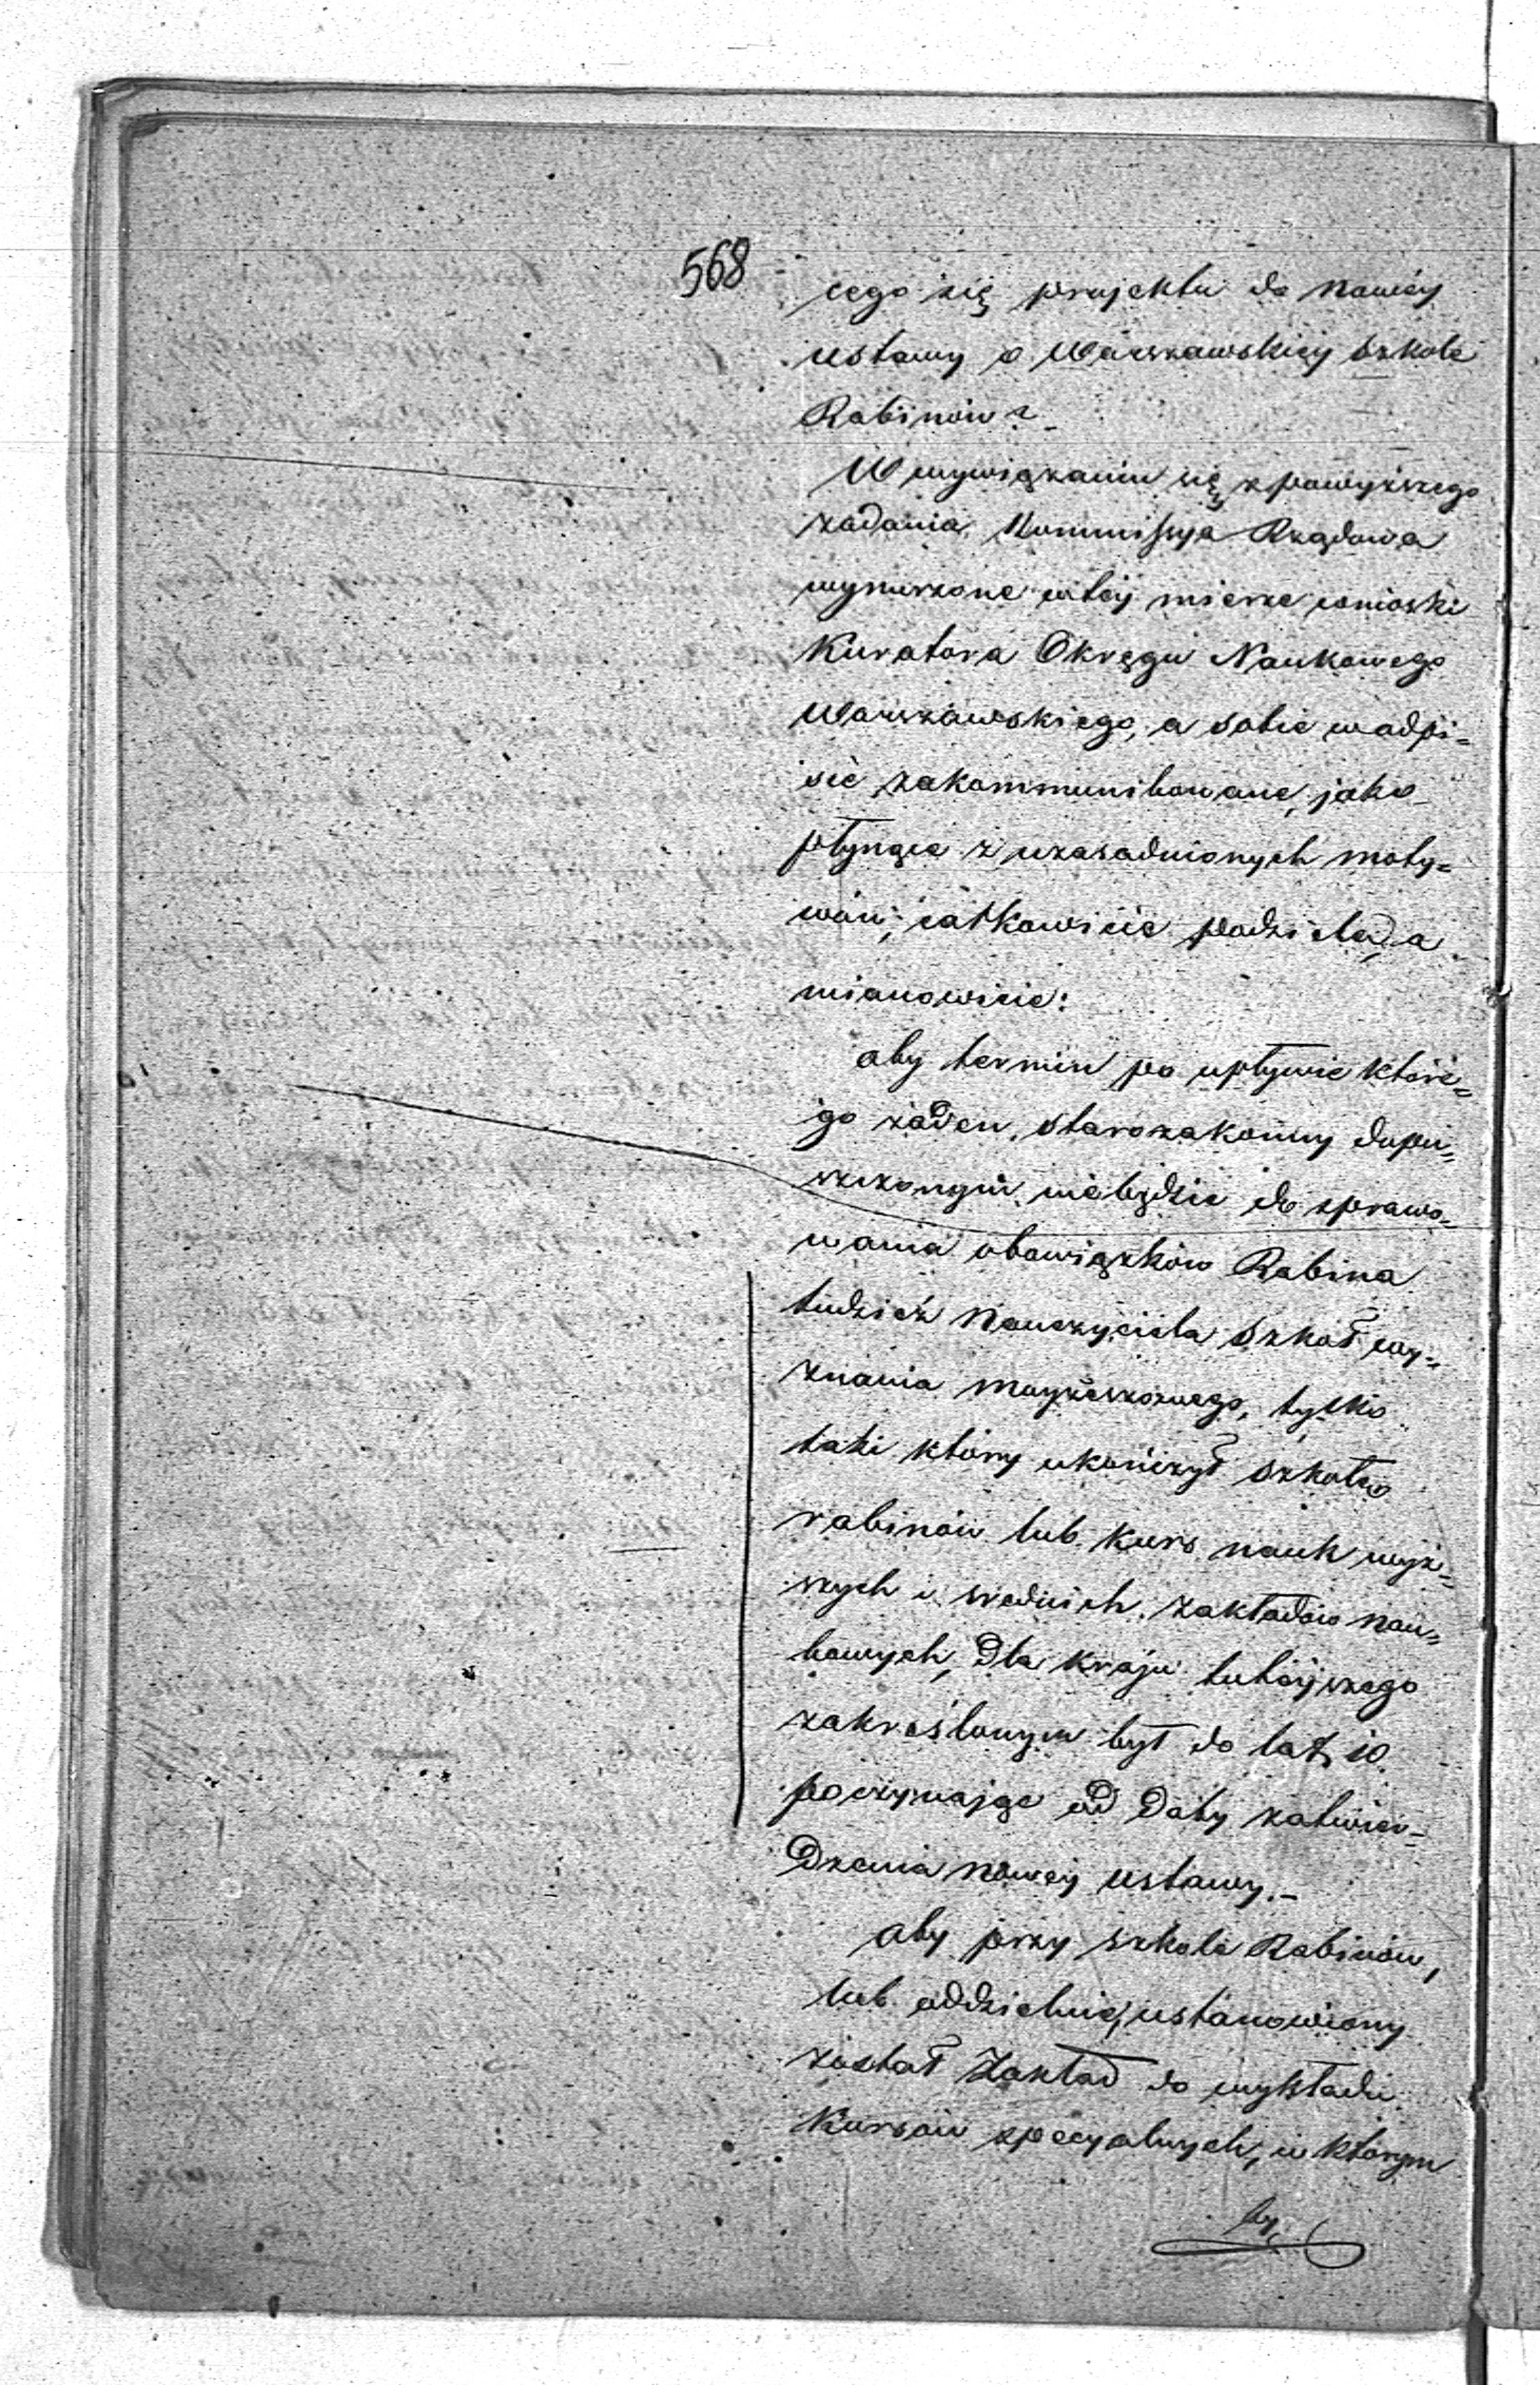 568
cego się projektu do nowéj
ustawy o Warszawskiéj szkole
Rabinów?
W wywiązaniu się z powyższego
zadania, Kommissya Rządowa
wynurzone w téj mierze wnioski
Kuratora Okręgu Naukowego
Warszawskiego, a sobie w odpi=
sie zakommunikowane, jako
płynące z uzasadnionych moty=
wów, całkowicie podziela, a
mianowicie:
aby termin po upływie które=
go żaden starozakonny dopu=
szczonym niebędzie do sprawo=
wania obowiązków Rabina
tudzież Nauczyciela Szkół wy=
znania mojżeszowego, tylko
taki który ukończył szkołę
rabinów lub kurs nauk wyż=
szych i średnich zakładów nau=
kowych, dla kraju tutéjszego
zakreślonym był do lat 10.
poczynając od daty zatwier=
dzenia nowéj ustawy.–
aby przy szkole Rabinów,
lub oddzielnie, ustanowiony
został Zakład do wykładu
Kursów specyalnych, w którym
by